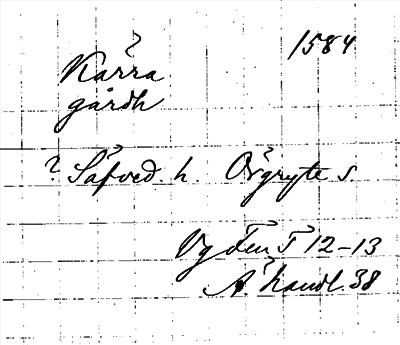 1584
Kärra
gårdh
? Säfved. h. Örgryte s.
Vg
12-13
Ä. handl. 38